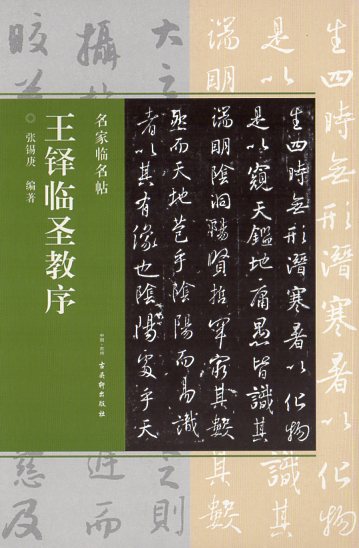 名家临名帖
王铎临圣教序
张锡庚 编著
中国·杭州
古吴轩出版社
生四時無形潛寒暑以化物
是以窺天鑑地庸愚皆識其
端明陰洞陽賢哲罕窮其數
然而天地苞乎陰陽而易識
者以其有像也陰陽處乎天
生四時無形潛寒暑以化物
是以
識其
端明
窮其數
大之
之則
攝
遊而
慈及